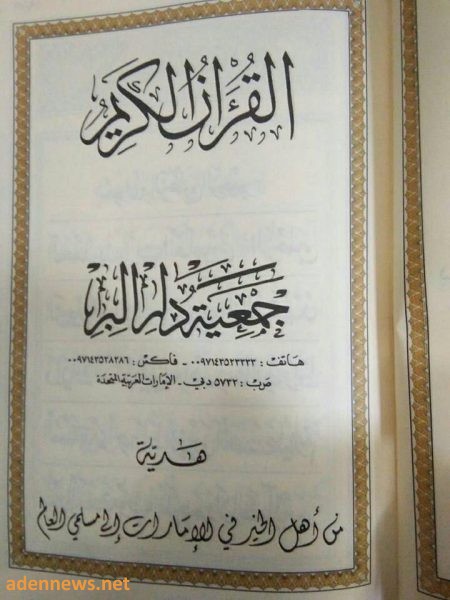 القرءان الكريم
جمعية دار البر
هاتف : ٠٠٩٧١٤٣٥٢٣٣٣٣ - فاكس : ٠٠٩٧١٤٣٥٢٨٢٨٦
ص.ب : ٥٧٣٢ دبي - الإمارات العربية المتحدة
هدية
من أهل الخير في الإمارات إلى مسلمي العالم
adennews.net